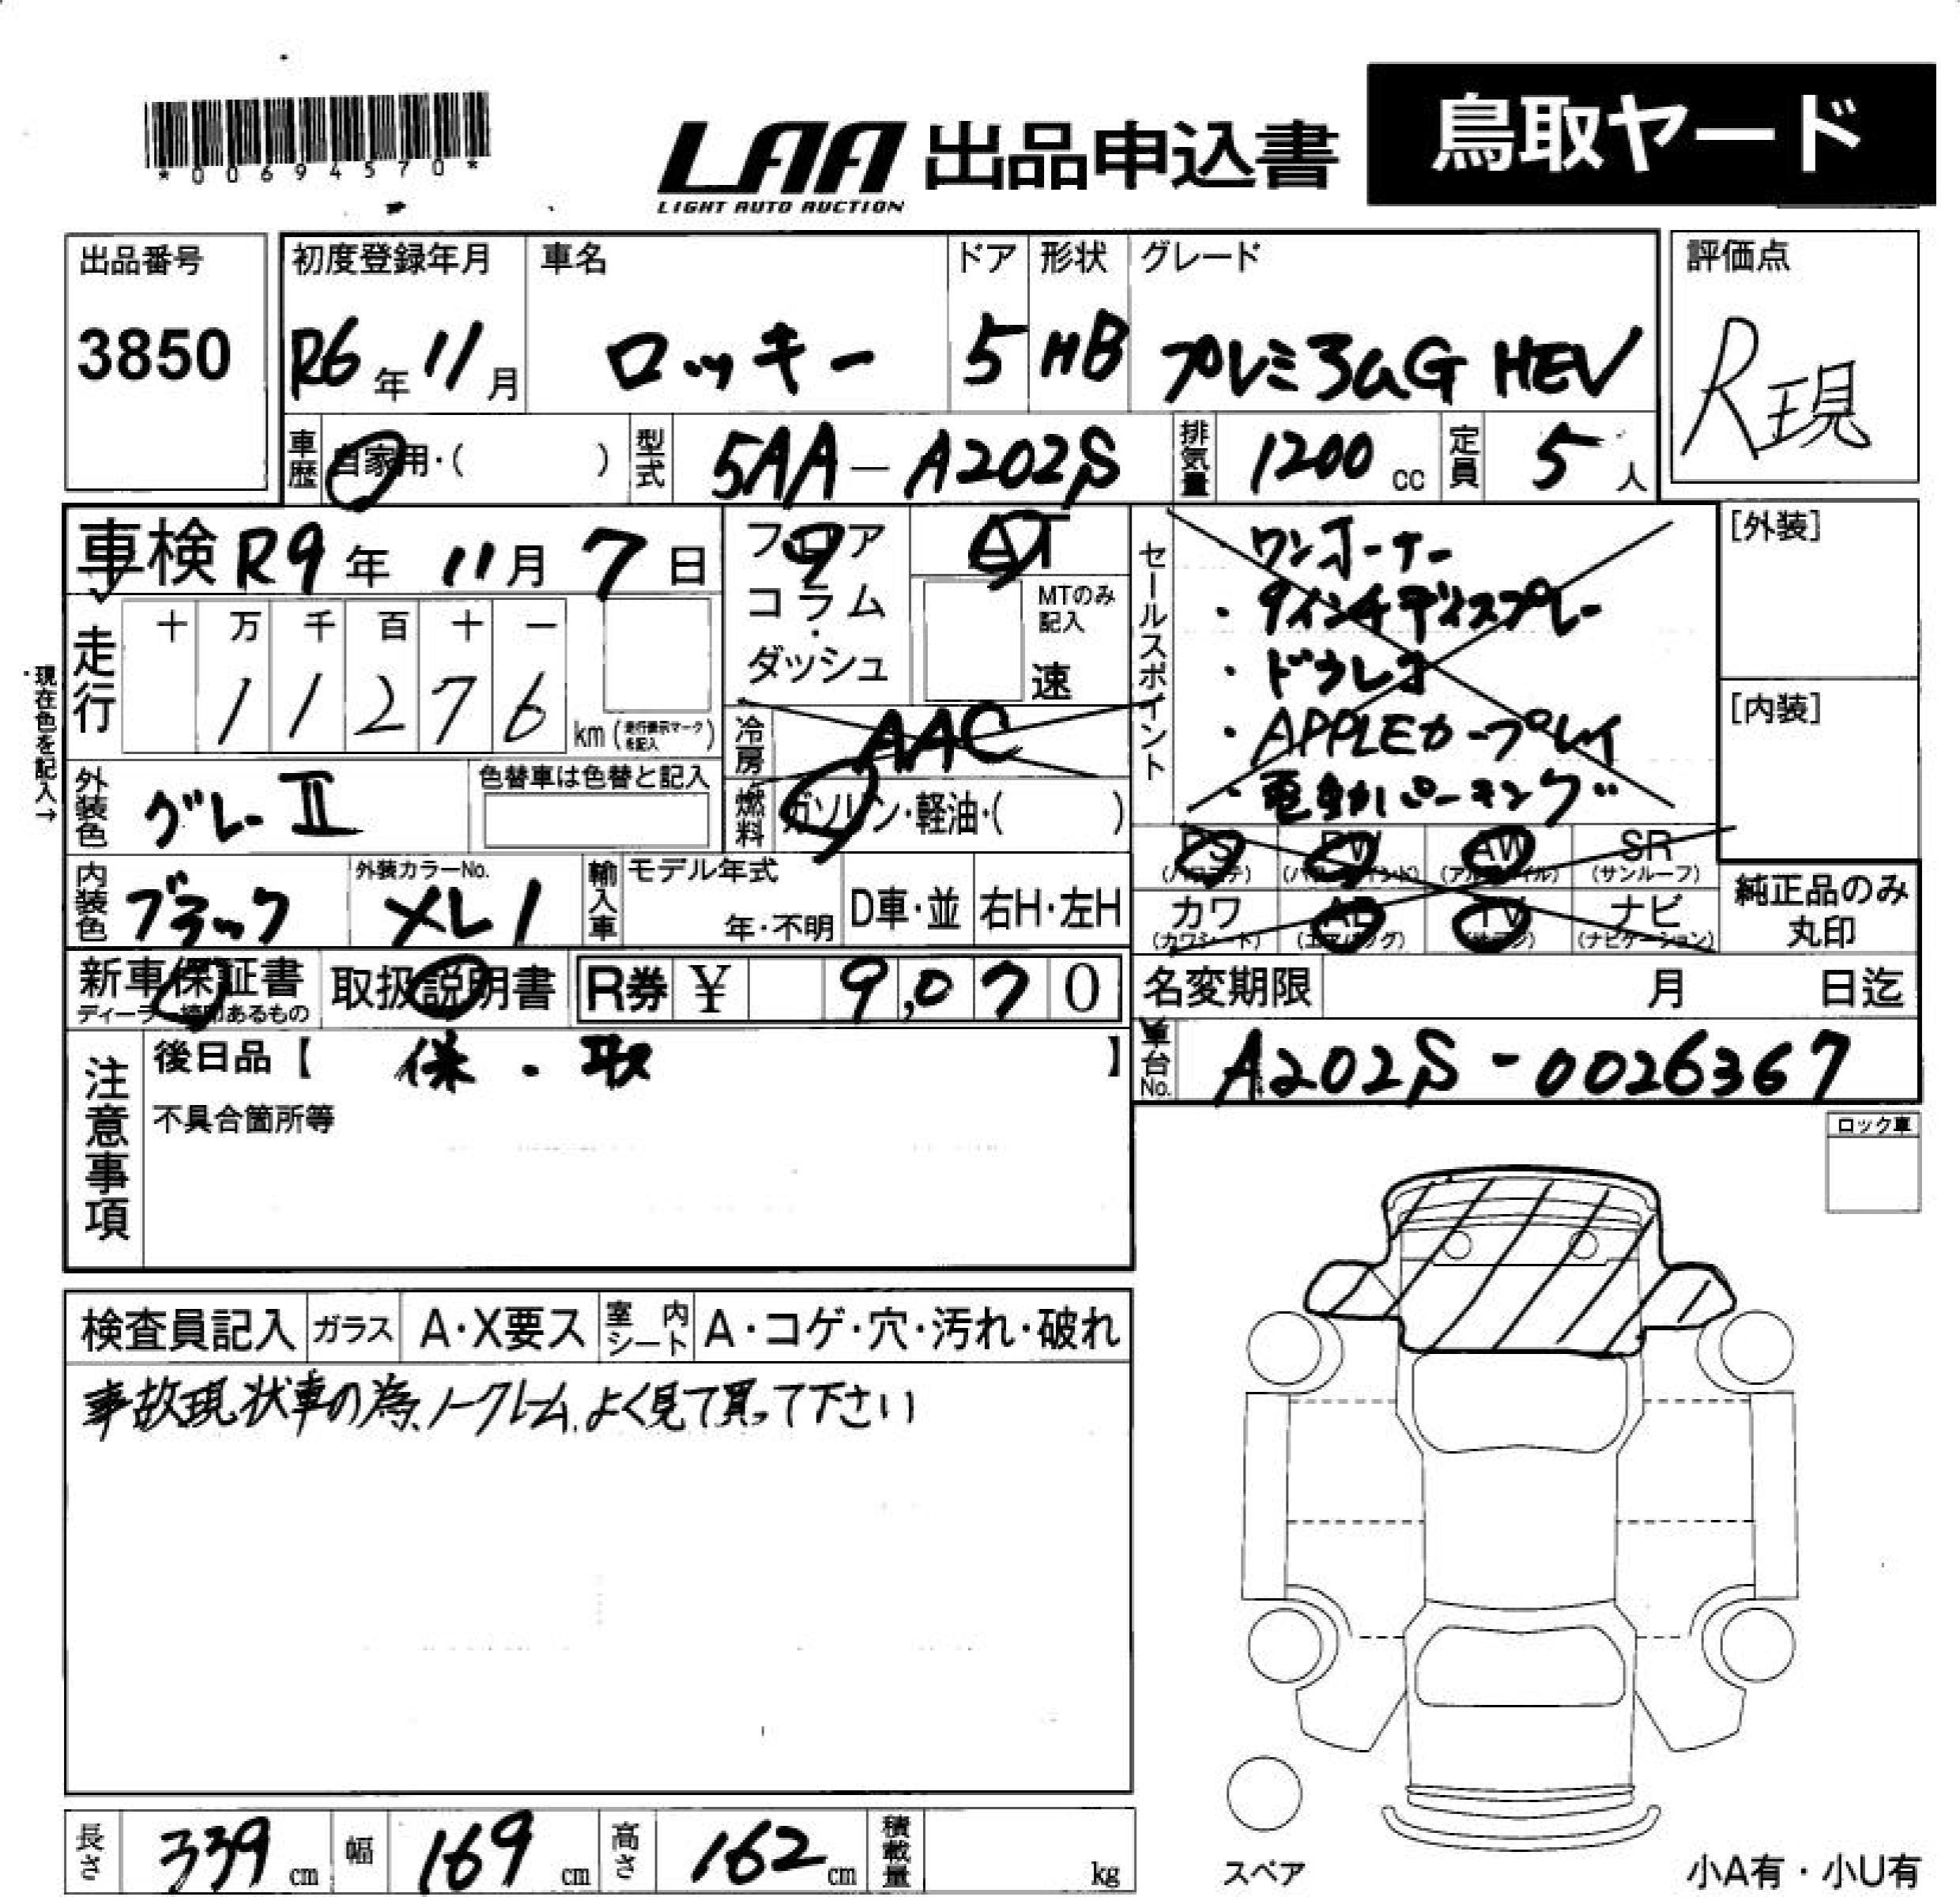 *00694570*
LAA 出品申込書 鳥取ヤード
LIGHT AUTO AUCTION
出品番号 初度登録年月 車名 ドア 形状 グレード 評価点
3850 R6年11月 ロッキー 5 HB プレミアムG HEV R現
車歴 自家用・( ) 型式 5AA-A202S 排気量 1200cc 定員 5人
車検 R9年 11月 7日 フロア AT
コラム・ダッシュ MTのみ記入 速
走行 十 万 千 百 十 一
11276 km(走行表示マークを記入)
現在色を記入→
冷房 AAC
外装色 グレーⅡ 色替車は色替と記入
燃料 ガソリン・軽油・( )
セールスポイント
・ワンオーナー
・9インチディスプレー
・ドラレコ
・APPLEカープレイ
・電動パーキング
[外装]
[内装]
PS PW AW SR
(パワステ) (パワーウインド) (アルミホイル) (サンルーフ)
カワ AB TV ナビ
(カワシート) (エアバッグ) (ナビゲーション)
純正品のみ丸印
内装色 ブラック 外装カラーNo. 輸入車 モデル年式 年・不明 D車・並 右H・左H
新車保証書 取扱説明書 R券 ¥ 9,070
ディーラー捺印あるもの
名変期限 月 日迄
注意事項 後日品【 保・取 】
車台No. A202S-0026367
不具合箇所等
ロック車
検査員記入 ガラス A・X要ス 室内シート A・コゲ・穴・汚れ・破れ
事故現状車の為、ノークレーム、よく見て買って下さい
長さ 339cm 幅 169cm 高さ 162cm 積載量 kg
スペア
小A有・小U有